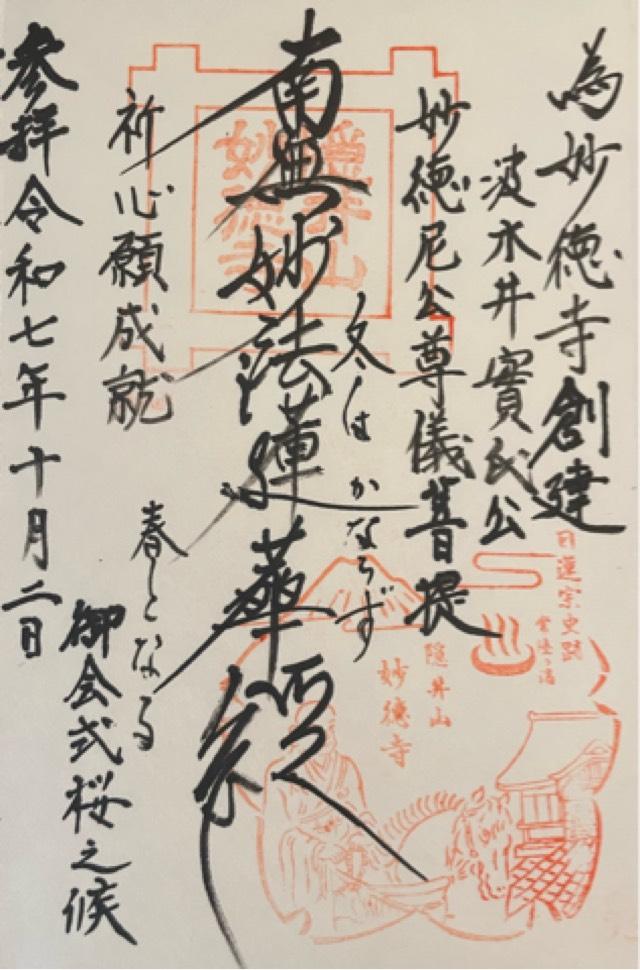 為妙徳寺創建
波木井實氏公
妙徳尼公尊儀菩提
冬はかならず
南無妙法蓮華経
春となる
祈心願成就
御会式桜之候
参拝令和七年十月二日
隠井山
妙徳寺
日蓮宗史跡
常陸の湯
隠井山
妙徳寺